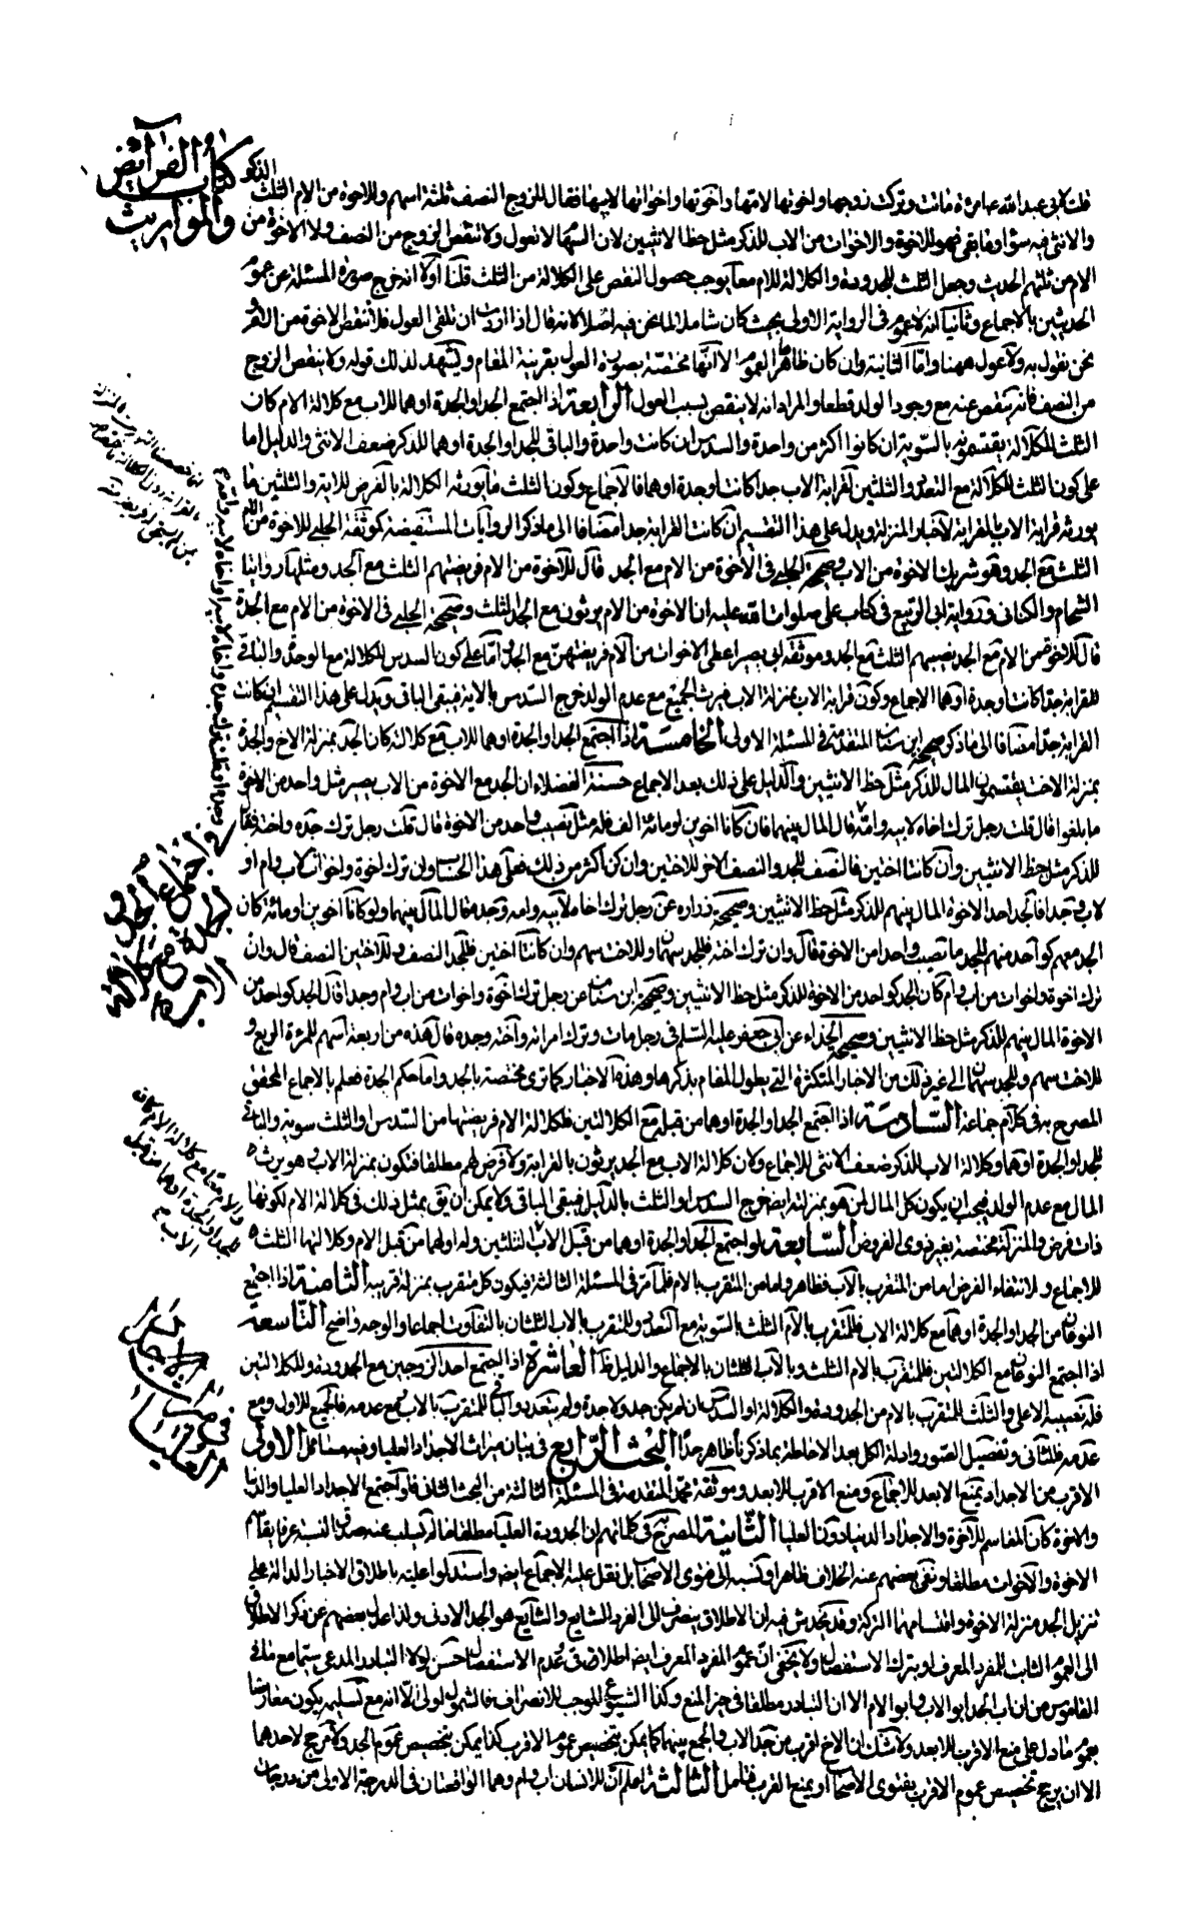 كتاب الفرائض
والمواريث
قلت لابي عبدالله ع امرءة ماتت وتركت زوجها واخوتها لامها واخوتها واخواتها لابيها فقال للزوج النصف ثلثة اسهم وللاخوة من الام الثلث الذكر
والانثى فيه سواء وما بقى فهو للاخوة والاخوات من الاب للذكر مثل حظ الانثيين لان السهام لا تعول ولا ينقص الزوج من النصف ولا الاخوة من
الام من ثلثهم الحديث وجعل الثلث للجدودة والكلالة للام معا يوجب حصول النقص على الكلالة من الثلث قلنا اولا انه خرج صورة المسئلة عن عموم
الحديثين بالاجماع وثانيا انه لا عموم فى الرواية الاولى بحيث كان شاملا لما نحن فيه اصلا لانه قال اذا اردت ان تلقى العول فلا تنقص الاخوة من الام
نحن نقول به ولا عول ههنا واما الثانية وان كان ظاهرها العموم الا انها مختصة بصورة العول بقرينة المقام ويشهد لذلك قوله ولا ينقص الزوج
من النصف فانه ينقص عنه مع وجود الولد قطعا والمراد انه لا ينقص بسبب العول الرابعة اذا اجتمع الجد او الجدة او هما للاب مع كلالة الام كان
الثلث للكلالة يقتسمونه بالسوية ان كانوا اكثر من واحدة والسدس ان كانت واحدة والباقى للجد او الجدة او هما للذكر ضعف الانثى والدليل اما
على كون الثلث للكلالة مع التعدد والثلثين لقرابة الاب جدا كانت او جدة او هما فالاجماع وكون الثلث ما يورثه الكلالة بالفرض للاية والثلثين ما
يورثه قرابة الاب بالقرابة لاخبار المنزلة ويدل على هذا التقسيم ان كانت القرابة جدا مضافا الى ما ذكر الروايات المستفيضة كموثقة الحلبى للاخوة من الام
الثلث مع الجد وهو شريك الاخوة من الاب وصحيحة الحلبى فى الاخوة من الام مع الجد قال للاخوة من الام فريضتهم الثلث مع الجد ومثلها روايتا
الشحام والكنانى ورواية ابى الربيع فى كتاب على صلوات الله عليه ان الاخوة من الام يرثون مع الجد الثلث وصحيحة الحلبى فى الاخوة من الام مع الجدة
قال للاخوة من الام مع الجد نصيبهم الثلث مع الجد وموثقة ابى بصير اعطى الاخوات من الام فريضتهن مع الجد واما على كون السدس للكلالة مع الوحدة والباقى
للقرابة جدا كانت او جدة او هما الاجماع وكون قرابة الاب بمنزلة الاب فيرث الجميع مع عدم الولد خرج السدس بالاية فيبقى الباقى ويدل على هذا التقسيم ان كانت
القرابة جدا مضافا الى ما ذكر صحيحة ابن سنان المتقدمة فى المسئلة الاولى الخامسة اذا اجتمع الجد او الجدة او هما للاب مع كلالته كان الجد بمنزلة الاخ والجدة
بمنزلة الاخت يقتسمون المال للذكر مثل حظ الانثيين والدليل على ذلك بعد الاجماع حسنة الفضلاء ان الجد مع الاخوة من الاب يصير مثل واحد من الاخوة
ما بلغوا قال قلت رجل ترك اخاه لابيه وامه قال المال بينهما فان كانا اخوين او مائة الف فله مثل نصيب واحد من الاخوة قال قلت رجل ترك جده واخته فقال
للذكر مثل حظ الانثيين وان كانتا اختين فالنصف للجد والنصف الاخر للاختين وان كن اكثر من ذلك فعلى هذا الحساب وان ترك اخوة واخوات لاب وام او
لاب وجدا فالجد احد الاخوة المال بينهم للذكر مثل حظ الانثيين وصحيحة زرارة عن رجل ترك اخاه لابيه وامه وجده قال المال بينهما ولو كانا اخوين او مائة كان
الجد معهم كواحد منهم للجد ما يصيب واحدا من الاخوة قال وان ترك اخته فللجد سهمان وللاخت سهم وان كانتا اختين فللجد النصف وللاختين النصف قال وان
ترك اخوة واخوات من اب وام كان الجد كواحد من الاخوة للذكر مثل حظ الانثيين وصحيحة ابن سنان عن رجل ترك اخوة واخوات من اب وام وجدا قال الجد كواحد من
الاخوة المال بينهم للذكر مثل حظ الانثيين وصحيحة الحذاء عن ابى جعفر عليه السلم فى رجل مات وترك امراته واخته وجده قال هذه من اربعة اسهم للمرءة الربع و
للاخت سهم وللجد سهمان الى غير ذلك من الاخبار المتكثرة التى يطول المقام بذكرها وهذه الاخبار كما ترى مختصة بالجد واما حكم الجدة فعلم بالاجماع المحقق
المصرح به فى كلام جماعة السادسة اذا اجتمع الجد او الجدة او هما من قبله مع الكلالتين فلكلالة الام فريضتها من السدس او الثلث سوية والباقى
للجد او الجدة او هما وكلالة الاب للذكر ضعف الانثى للاجماع ولان كلالة الاب مع الجد يرثون بالقرابة ولا فرض لهم مطلقا فتكون بمنزلة الاب وهو يرث
المال مع عدم الولد فيجب ان يكون كل المال لمن هو بمنزلته ايضا خرج السدس او الثلث بالدليل فيبقى الباقى ولا يمكن ان يق بمثل ذلك فى كلالة الام لكونها
ذات فرض والمنزلة مختصة بغير ذوى الفروض السابعة لو اجتمع الجد او الجدة او هما من قبل الاب الثلثين وله او لهما من قبل الام وكلالتها الثلث
للاجماع ولانتفاء الفرض اما من المتقرب بالاب فظاهر واما من المتقرب بالام فلما مر فى المسئلة الثالثة فيكون كل متقرب بمنزلة قريبه الثامنة اذا اجتمع
النوعان من الجد او الجدة او هما مع كلالة الاب فللمتقرب بالام الثلث بالسوية مع التعدد وللمتقرب بالاب الثلثان بالتفاوت اجماعا والوجه واضح التاسعة
اذا اجتمع النوعان مع الكلالتين فللمتقرب بالام الثلث وبالاب الثلثان بالاجماع والدليل ظ العاشرة اذا اجتمع احد الزوجين مع الجدودة وللكلالتين
فله نصيبه الاعلى والثلث للمتقرب بالام من الجدودة والكلالة او السدس ان لم يكن جد ولا جدة ولم يتعدد والباقى للمتقرب بالاب ومع عدمه فالجميع للاول ومع
عدمه فللثانى وتفصيل الصور وادلة الكل بعد الاحاطة بما ذكرنا ظاهر جدا البحث الرابع فى بيان ميراث الاجداد العليا وفيه مسائل الاولى
الاقرب من الاجداد يمنع الابعد للاجماع ومنع الاقرب للابعد وموثقة محمد المتقدمة فى المسئلة الثالثة من البحث الثانى فلو اجتمع الاجداد العليا والدنيا
والاخوة كان المقاسم للاخوة والاجداد الدنيا دون العليا الثانية المصرح فى كلماتهم ان الجدودة العليا مطلقا ما لم يسلب عنه صدق النسبة عرفا يقاسم
الاخوة والاخوات مطلقا ونفى بعضهم عنه الخلاف ظاهرا ونسبه الى فتوى الاصحاب بل نقل عليه الاجماع ايضا واستدلوا عليه باطلاق الاخبار الدالة على
تنزيل الجد منزلة الاخوة واقتسامهما التركة وقد يخدش فيه ان الاطلاق ينصرف الى الفرد الشايع والشايع هو الجد الادنى ولذا عدل بعضهم عن ذكر الاطلاق
الى العموم الثابت للمفرد المعرف او بترك الاستفصال ولا يخفى ان عموم المفرد المعرف ايضا اطلاق فى عدم الاستفصال حسن لولا التبادر المدعى سيما مع ما فى
القاموس من ان اب الجد ابو الاب وابو الام الا ان التبادر مطلقا فى حيز المنع وكذا الشيوع الموجب للانصراف فالشمول اولى الا انه مع تسليمه يكون معارضا
بعموم ما دل على منع الاقرب للابعد ولا شك ان الاخ اقرب من جد الاب والجمع بينهما كما يمكن بتخصيص عموم الاقرب كذا يمكن بتخصيص عموم الجد ولا مرجح لاحدهما
الا ان يرجح تخصيص عموم الاقرب بفتوى الاصحاب او يمنع القرب فتامل الثالثة اعلم ان للانسان اب وام وهما الواقعتان فى الدرجة الاولى من درجات
فى اجتماع الجد و
الجدة مع كلالة
الاب
والام معا مع كلالة الام كان
للجد او الجدة او هما من قبل
الاب
فى ميراث الاجداد
العليا